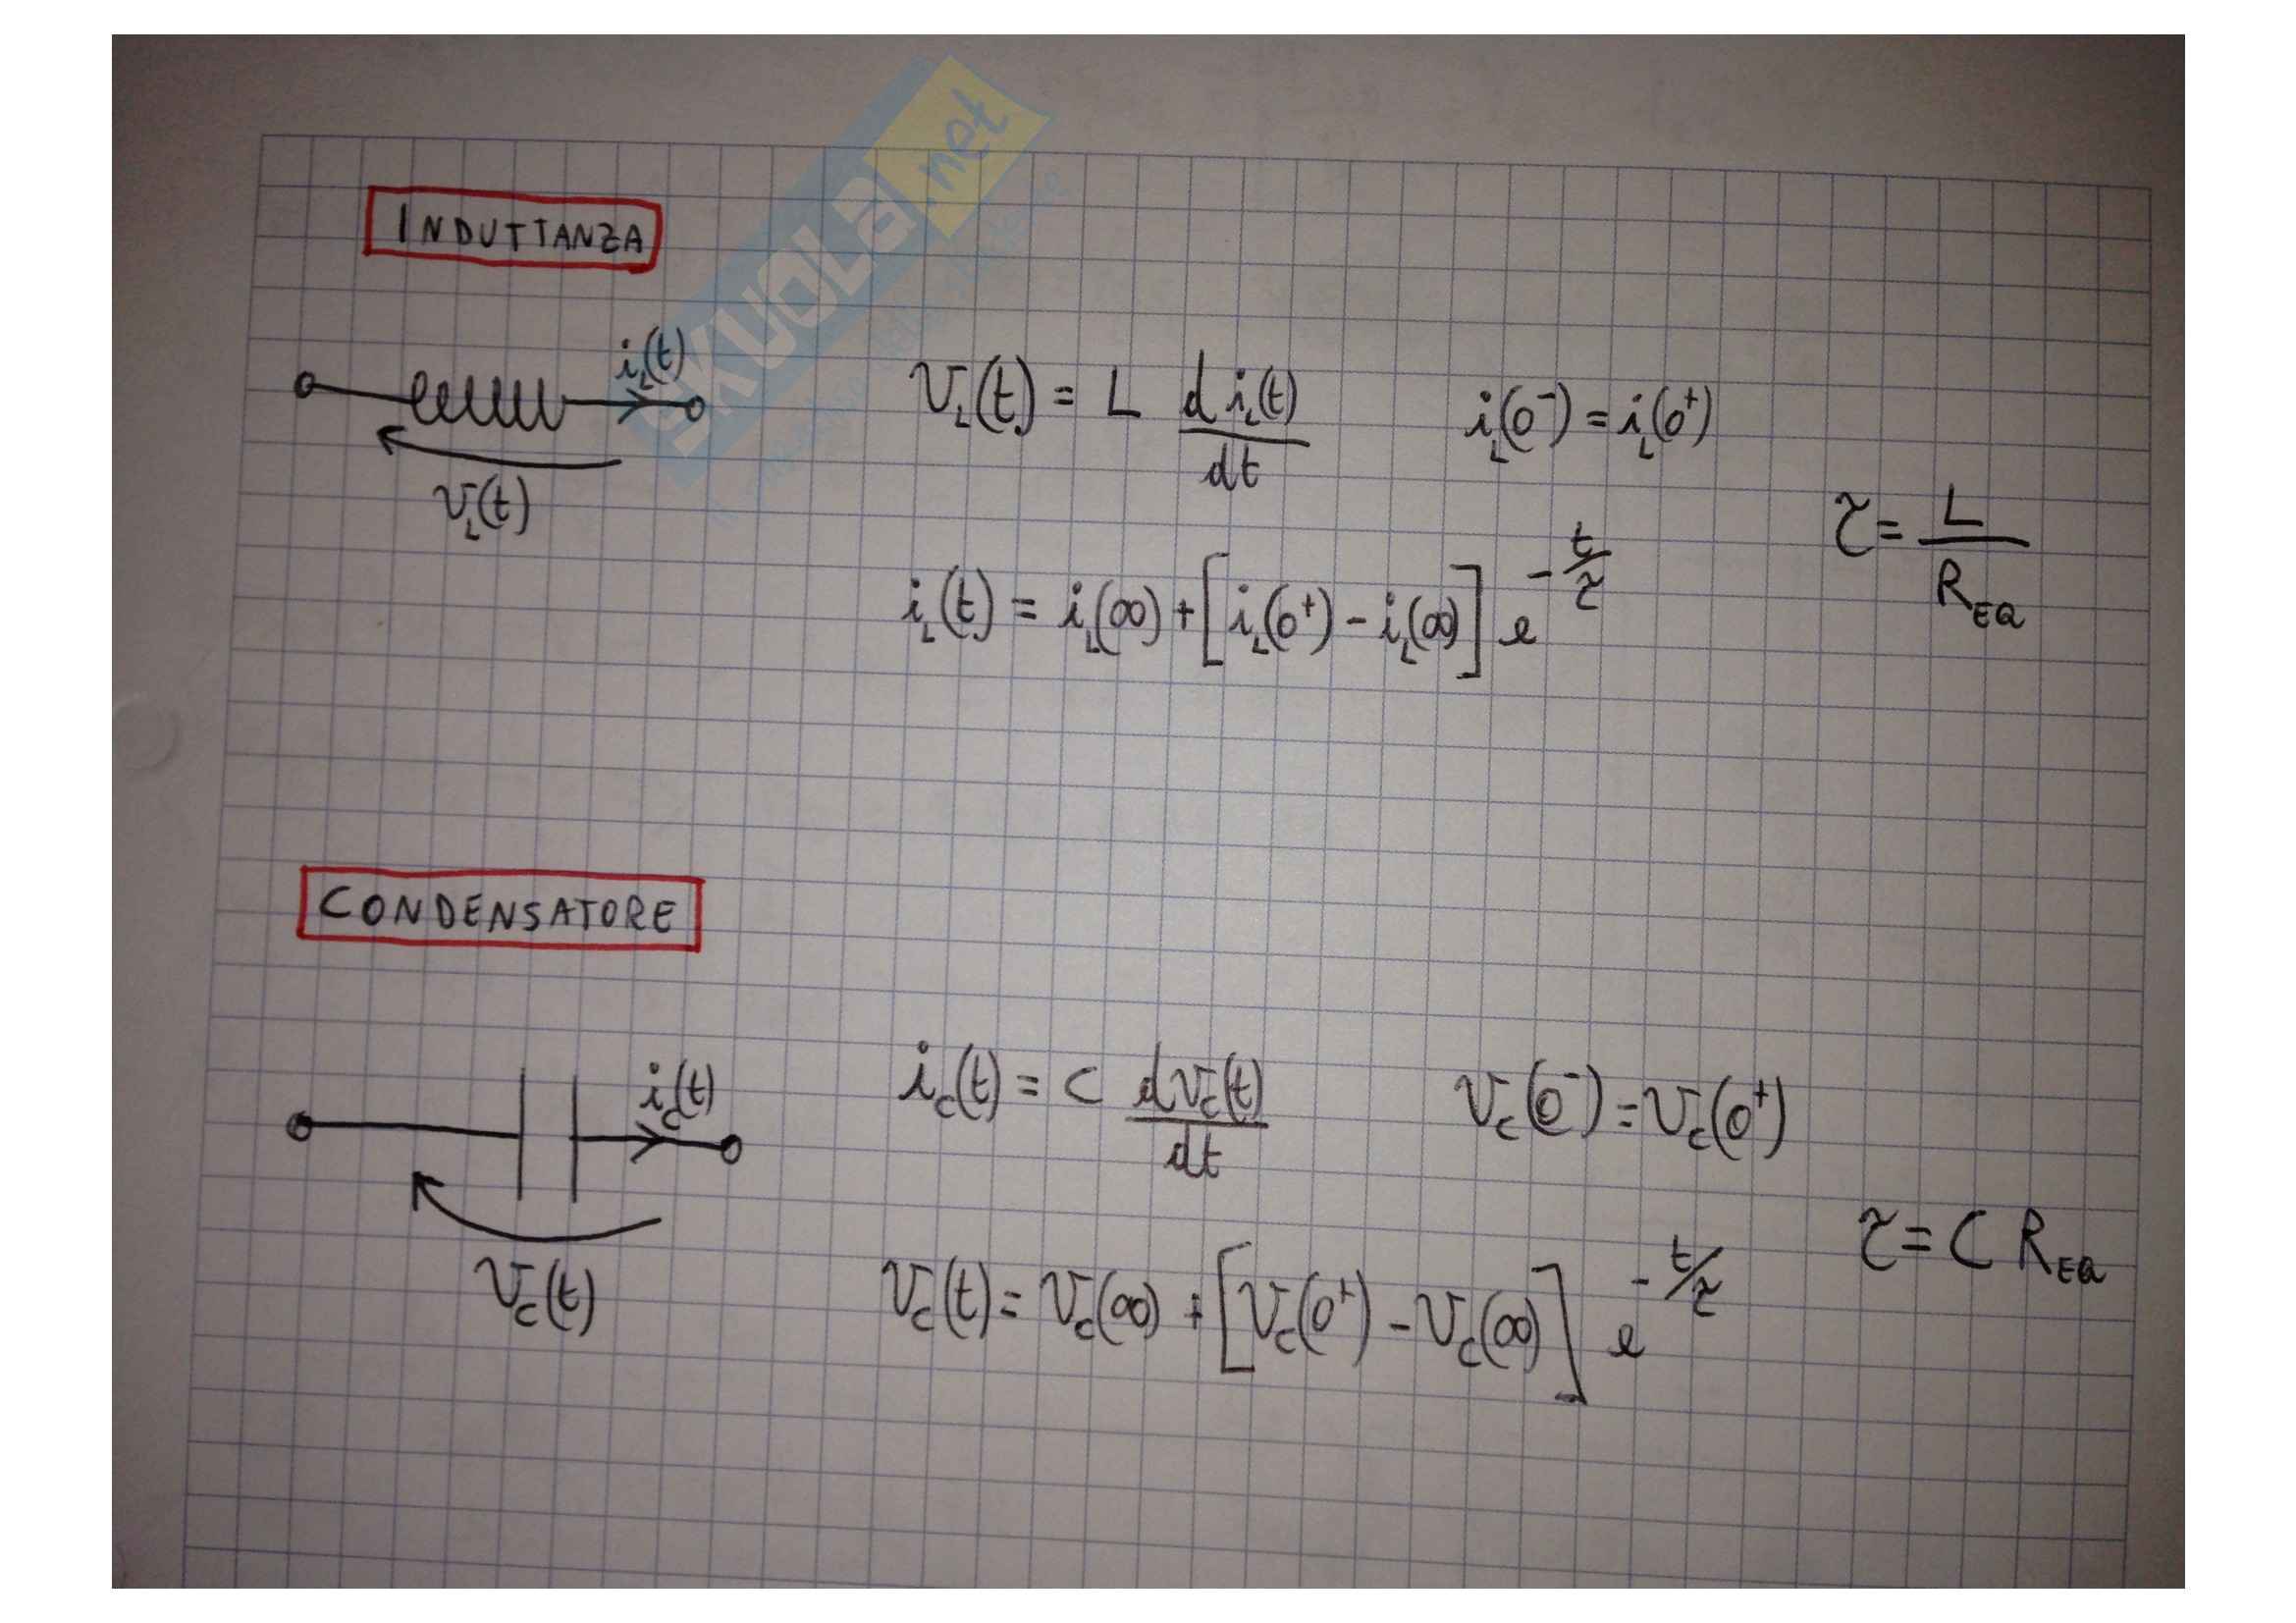 INDUTTANZA
SKUOLA.net
i_L(t)
v_L(t)
v_L(t) = L d i_L(t) / dt
i_L(0⁻) = i_L(0⁺)
τ = L / R_EQ
i_L(t) = i_L(∞) + [i_L(0⁺) - i_L(∞)] e^(-t/τ)
CONDENSATORE
i_C(t)
v_C(t)
i_C(t) = C d v_C(t) / dt
v_C(0⁻) = v_C(0⁺)
τ = C R_EQ
v_C(t) = v_C(∞) + [v_C(0⁺) - v_C(∞)] e^(-t/τ)